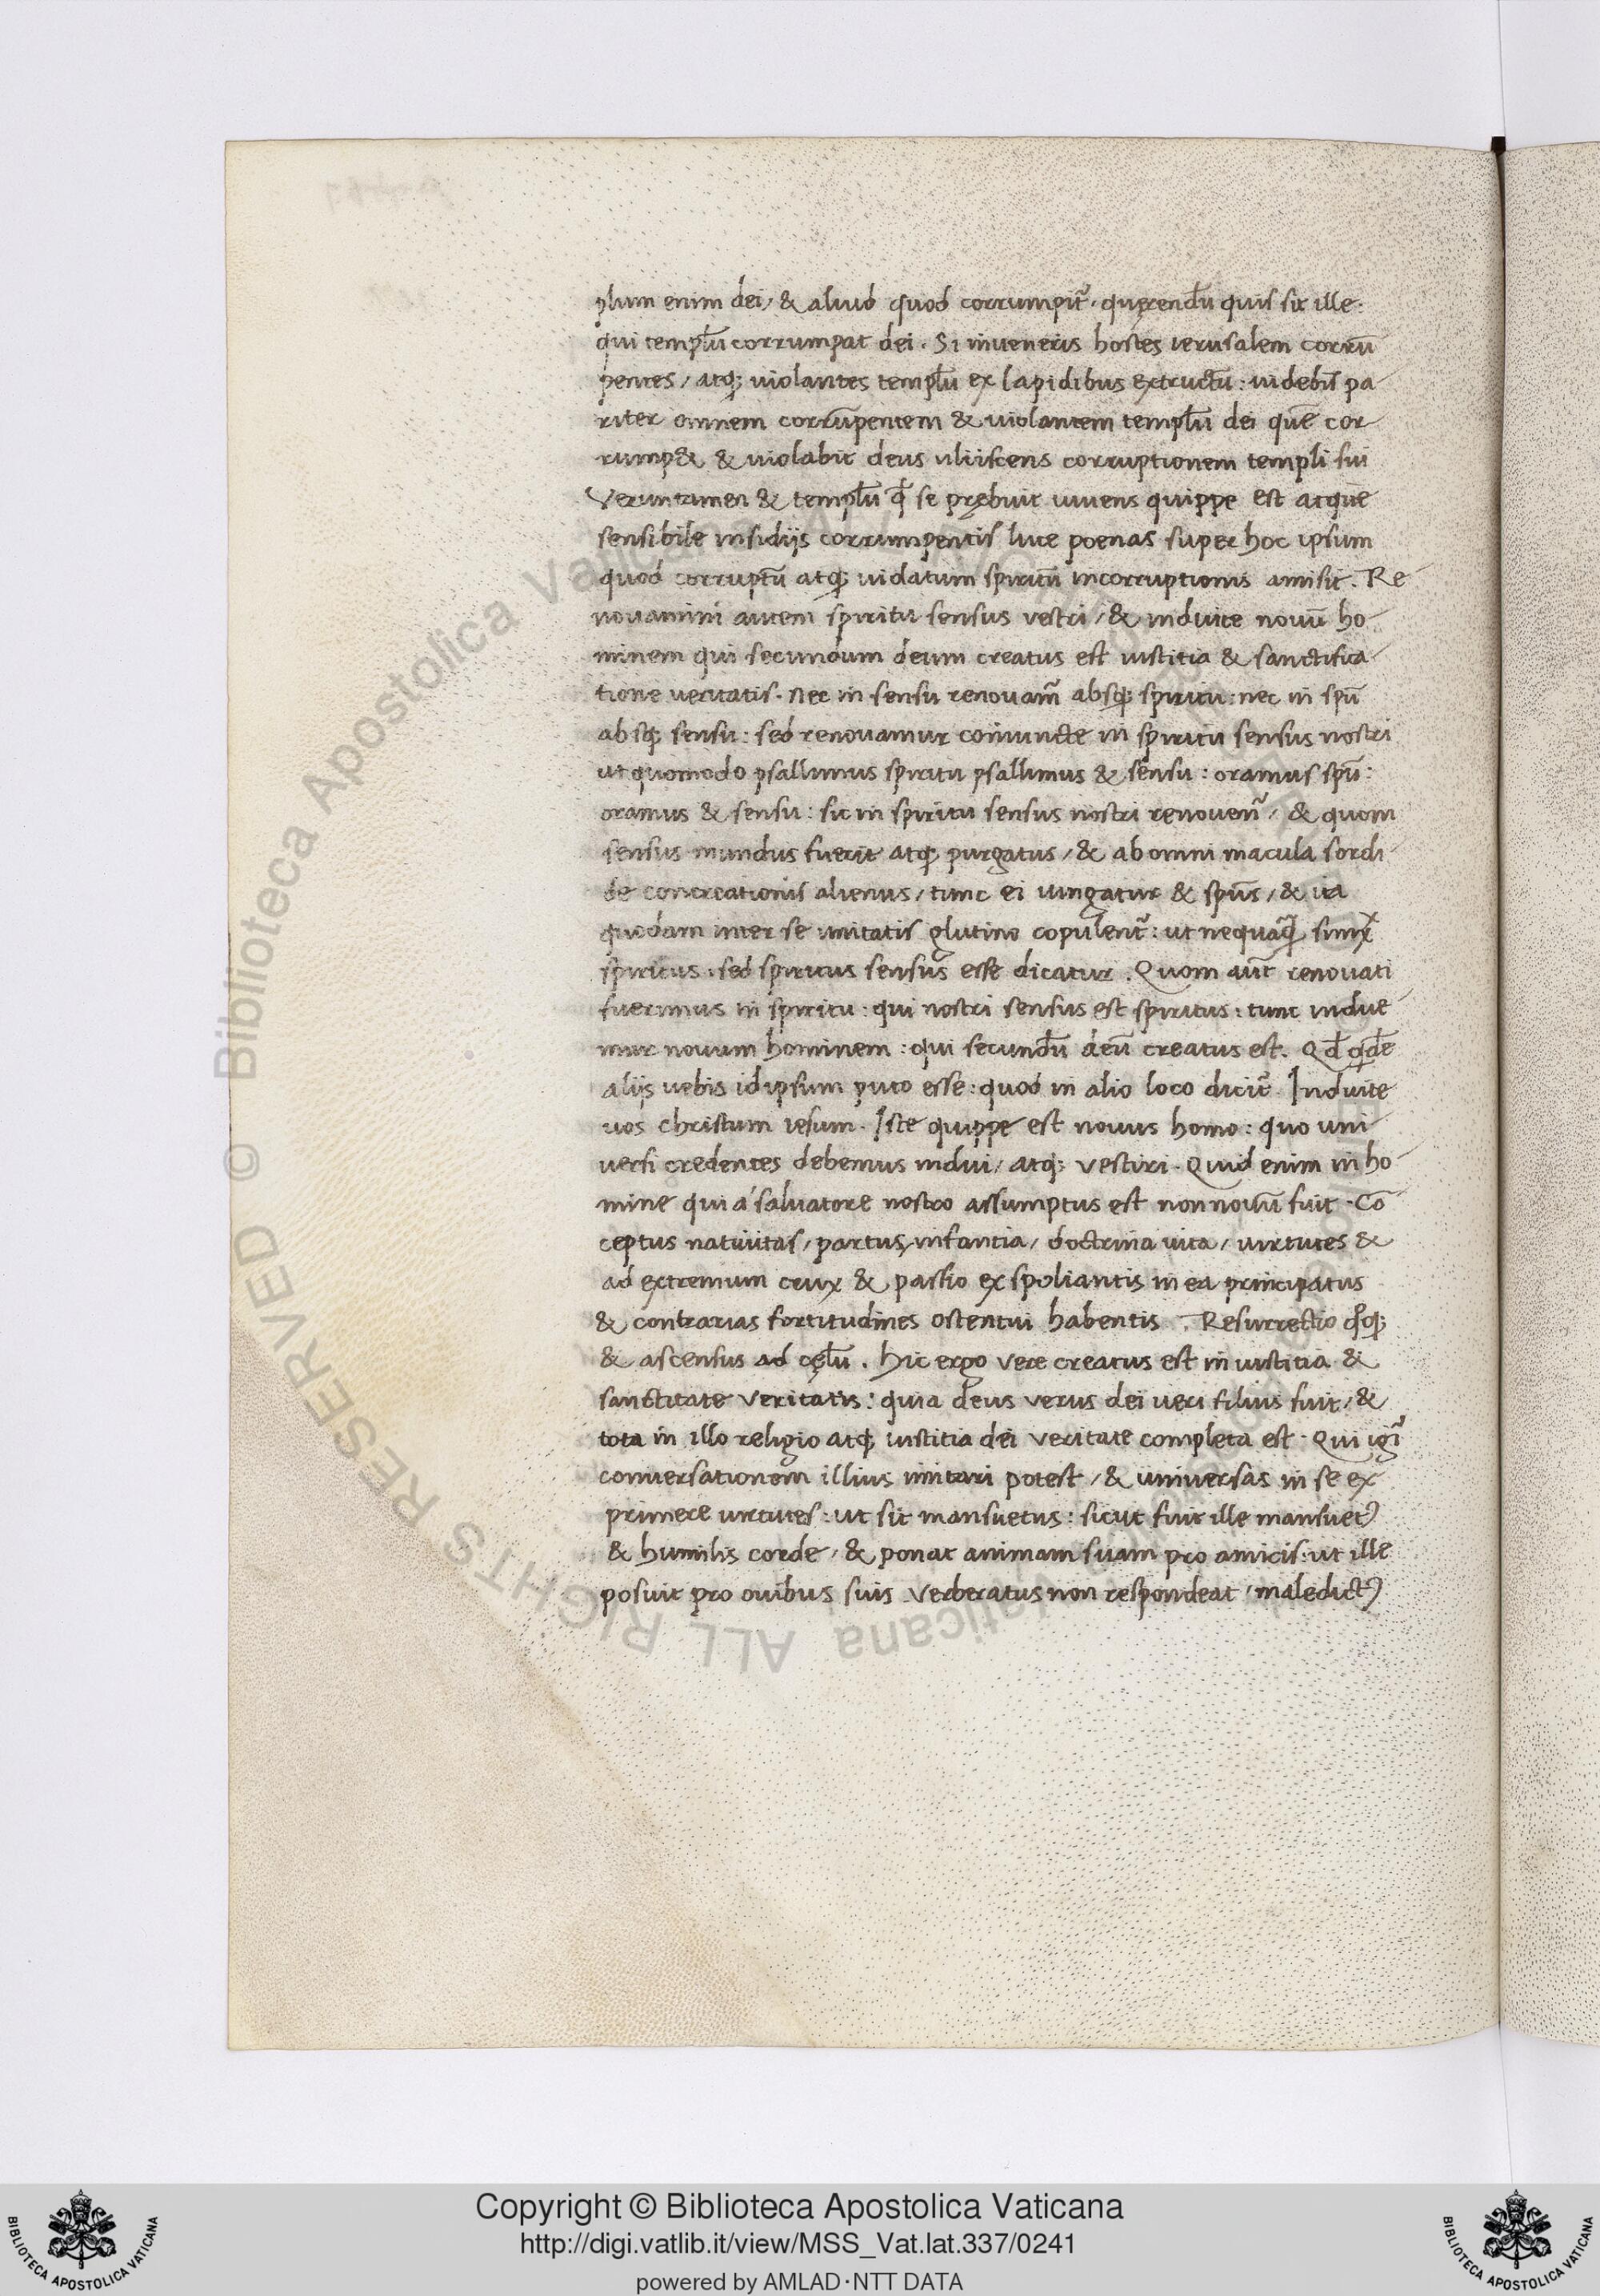 plum enim dei, & aliud quod corrumpit᷑. quęrendū quis sit ille.
qui templū corrumpat dei. Si inueneris hostes ierusalem corrū
pentes, atq; uiolantes templū ex lapidibus extructū: uidebis pa
riter omnem corrūpentem & uiolantem templū dei quē cor
rump& & uiolabit deus uliscens corruptionem templi sui
Veruntamen & templū se prębuit uiuens quippe est atque
sensibile insidijs corrumpentis luit poenas super hoc ipsum
quod corruptū atq; spiritū incorruptionis amisit. Re
nouamini autem spiritu sensus vestri, & induite nouū ho
minem qui secundum deum creatus est iustitia & sanctifica
tione ueritatis. Nec in sensu renouam᷑ absq; spiritu: nec in spū
absq; sensu: sed renouamur coniuncte in spiritu sensus nostri
ut quomodo psallimus spiritu psallimus & sensu: oramus spū:
oramus & sensu: sic in spiritu sensus nostri renouem᷑, & quom
sensus mundus fuerit atq; purgatus, & ab omni macula sordi
de concreationis alienus, tunc ei iungatur & spūs, & ita
quodam inter se unitatis glutino copulent᷑: ut nequaq̄
spiritus. sed spiritus sensus esse dicatur. Quom aūt renouati
fuerimus in spiritu: qui nostri sensus est spiritus: tunc indue
mur nouum hominem: qui secundū deū creatus est. Qd̄
alijs uebis idipsum puto esse: quod in alio loco dicit᷑. Induite
uos christum iesum. Iste quippe est nouus homo: quo uni
uersi credentes debemus indui, atq; vestiri. Quid enim in ho
mine qui á saluatore nostro assumptus est non nouū fuit. Cō
ceptus natiuitas, partus, infantia, doctrina uita, uirtutes &
ad extremum crux & passio exspoliantis in ea principatus
& contrarias fortitudines ostentui habentis. Resurrectio qoq;
& ascensus ad cęlū. Hic ergo vere creatus est in iustitia &
sanctitate veritatis: quia deus verus dei ueri filius fuit, &
tota in illo religio atq; iustitia dei veritate completa est. Qui igi᷑
conuersationem illius imitari potest, & uniuersas in se ex
primere uirtutes: ut sit mansuetus: sicut fuit ille mansuetꝰ
& humilis corde, & ponat animam suam pro amicis: ut ille
posuit pro ouibus suis verberatus non respondeat, maledictꝰ
Copyright © Biblioteca Apostolica Vaticana
http://digi.vatlib.it/view/MSS_Vat.lat.337/0241
powered by AMLAD·NTT DATA